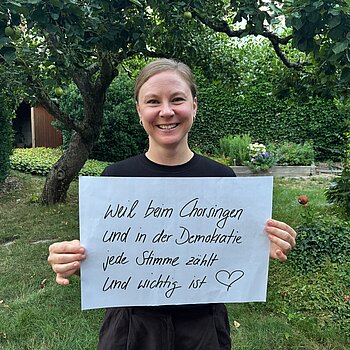 Weil beim Chorsingen
und in der Demokratie
jede Stimme zählt
und wichtig ist ♡